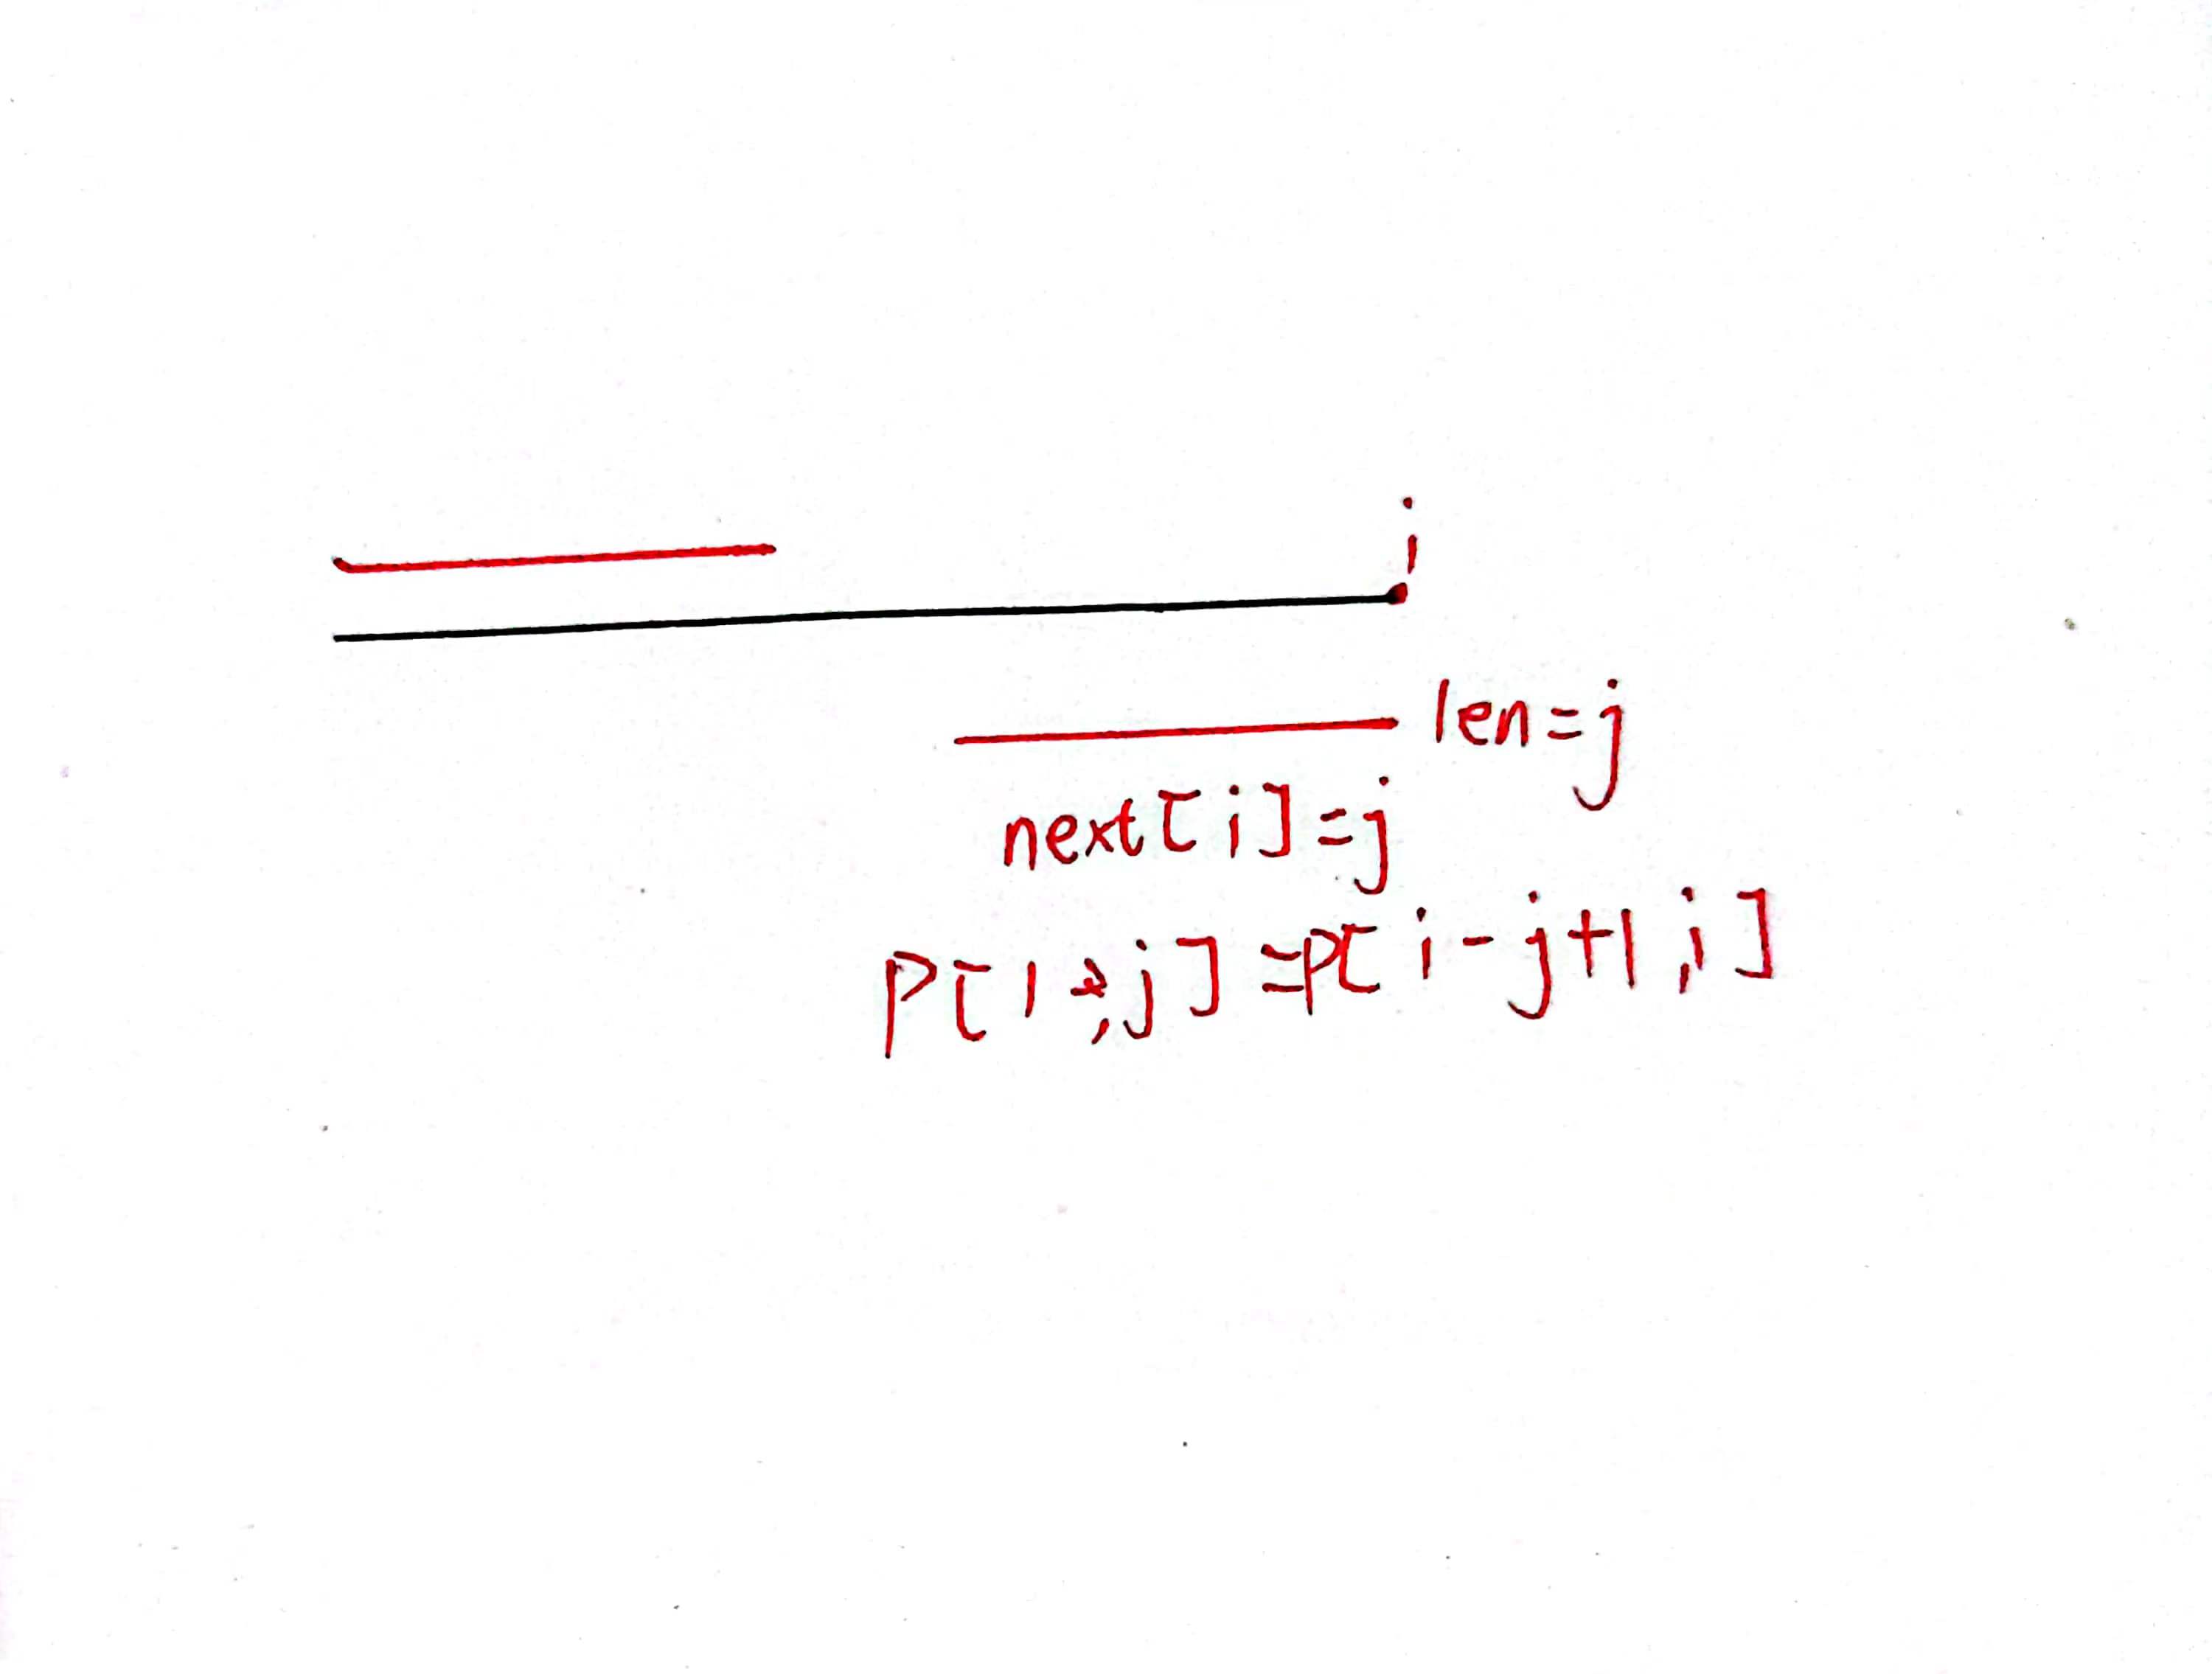 i
len=j
next[i]=j
P[1,j]=P[i-j+1,i]